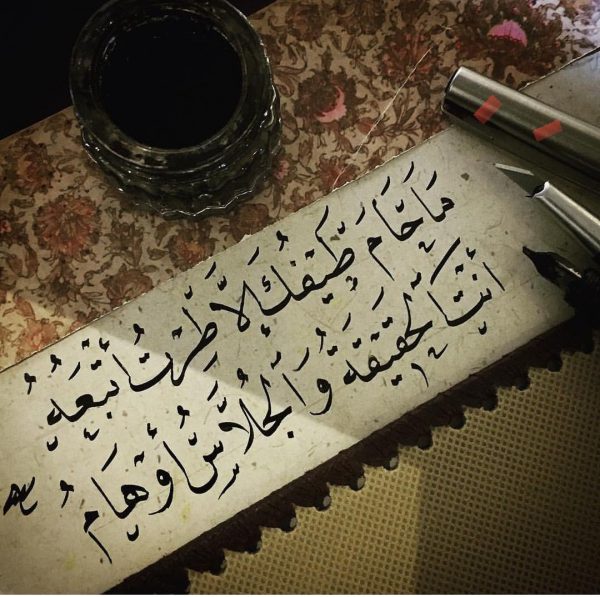 مَا حَامَ طَيفُكِ إلَّا طِرْتُ أتْبَعُهُ
أنْتِ الحَقِيقَةُ وَالجُلَّاسُ أوْهَامُ